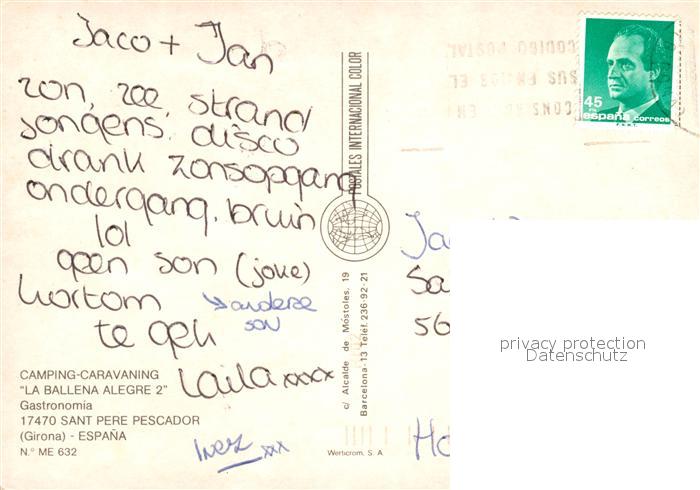 Jaco + Jan
zon, zee, strand
jongens, disco
drank zonsopgang
ondergang, bruin
lol
geen son (joke)
kortom → anderse
son
te gek
Laila xxxx
Inez xxx
CAMPING-CARAVANING
"LA BALLENA ALEGRE 2"
Gastronomía
17470 SANT PERE PESCADOR
(Girona) - ESPAÑA
N.º ME 632
POSTALES INTERNACIONAL COLOR
c/ Alcalde de Móstoles, 19
Barcelona-13 Teléf. 236-92-21
Werticrom, S. A
CODIGO POSTAL
45
PTA
españa correos
Ja
Sa
56
Ho
privacy protection
Datenschutz